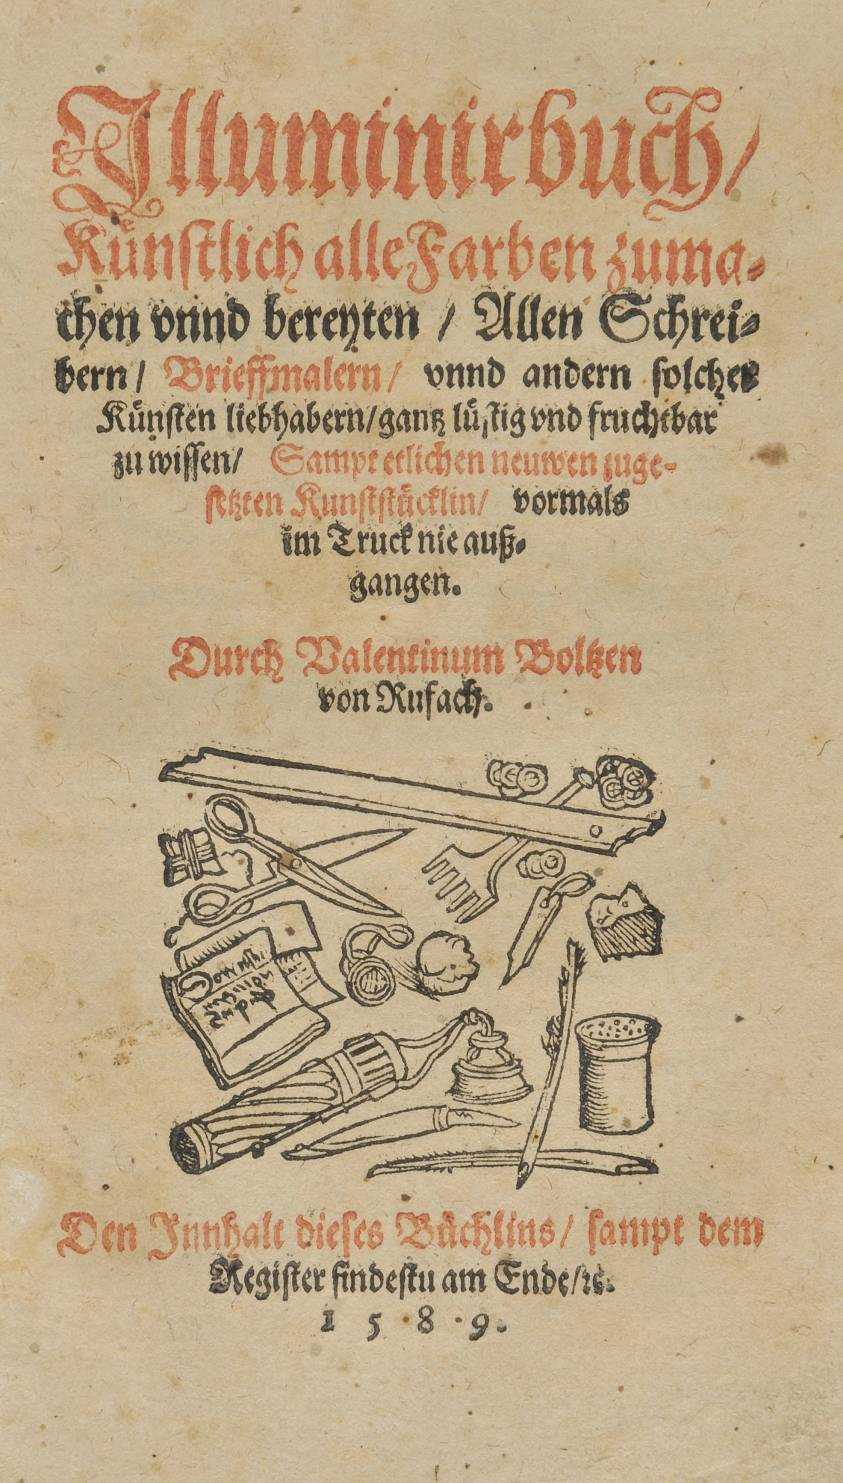 Illuminirbuch/
Künstlich alle Farben zuma-
chen vnnd bereyten / Allen Schrei-
bern/ Brieffmalern/ vnnd andern solcher
Künsten liebhabern/gantz lüstig vnd fruchtbar
zu wissen/ Sampt etlichen neuwen zuge-
setzten Kunststücklin/ vormals
im Truck nie auß-
gangen.
Durch Valentinum Boltzen
von Rufach.
Den Innhalt dieses Büchlins/ sampt dem
Register findestu am Ende/ꝛc.
1589.